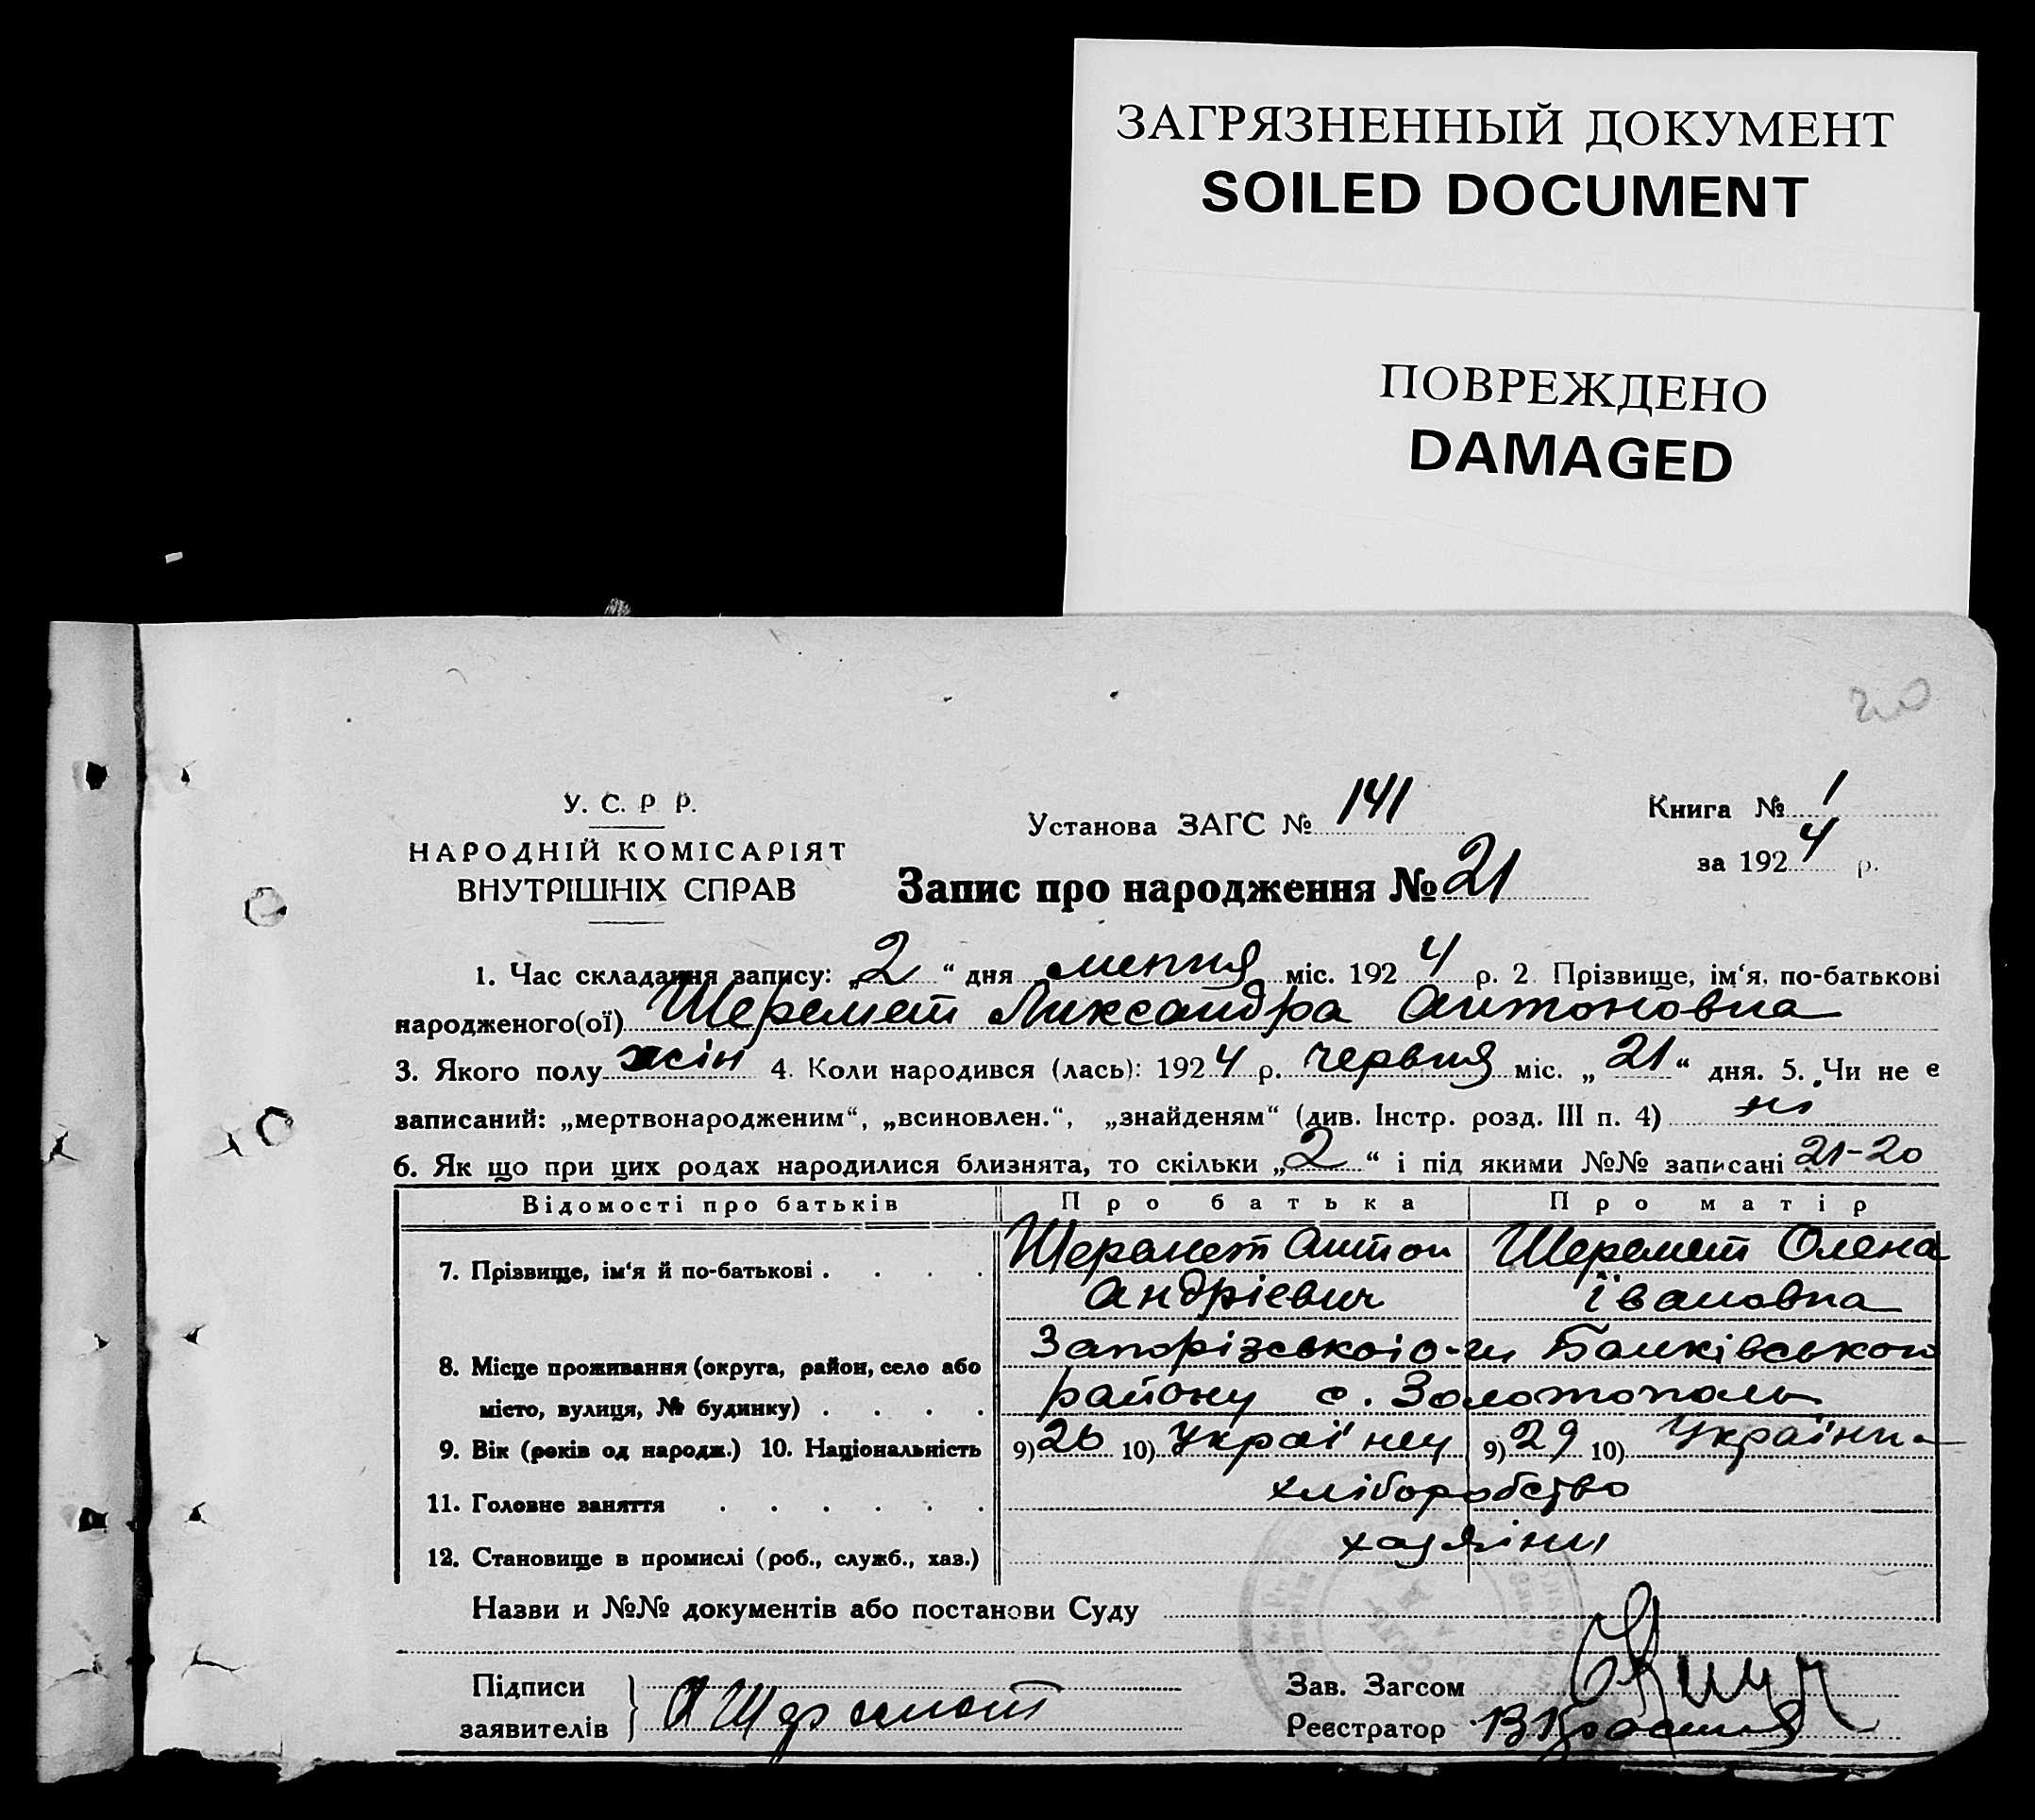 ЗАГРЯЗНЕННЫЙ ДОКУМЕНТ
SOILED DOCUMENT
ПОВРЕЖДЕНО
DAMAGED
20
У. С. Р. Р.
НАРОДНІЙ КОМІСАРІЯТ
ВНУТРІШНІХ СПРАВ
Установа ЗАГС № 141
Книга № 1
за 1924 р.
Запис про народження № 21
1. Час складання запису: „2“ дня липня міс. 1924 р. 2 Прізвище, ім‘я, по-батькові
народженого(ої) Шеремет Лиександра Антоновна
3. Якого полу жін 4. Коли народився (лась): 1924 р. червня міс. „21“ дня. 5. Чи не є
записаний: „мертвонародженим“, „всиновлен.“, „знайденям“ (див. Інстр. розд. III п. 4) ні
6. Як що при цих родах народилися близнята, то скільки „2“ і під якими №№ записані 21-20
Відомості про батьків Про батька Про матір
7. Прізвище, ім‘я й по-батькові . . . . Шеремет Антон Шеремет Олена
Андрієвич Івановна
8. Місце проживання (округа, район, село або Запорізького Балківського
місто, вулиця, № будинку) . . . . району с. Золотополь
9. Вік (років од народж.) 10. Національність 9) 26 10) Украінец 9) 29 10) Українка
11. Головне заняття . . . . . . хліборобство
12. Становище в промислі (роб., служб., хаз.) хазяіни
Назви и №№ документів або постанови Суду
Підписи
заявителів } А Шеремет
Зав. Загсом
Реєстратор